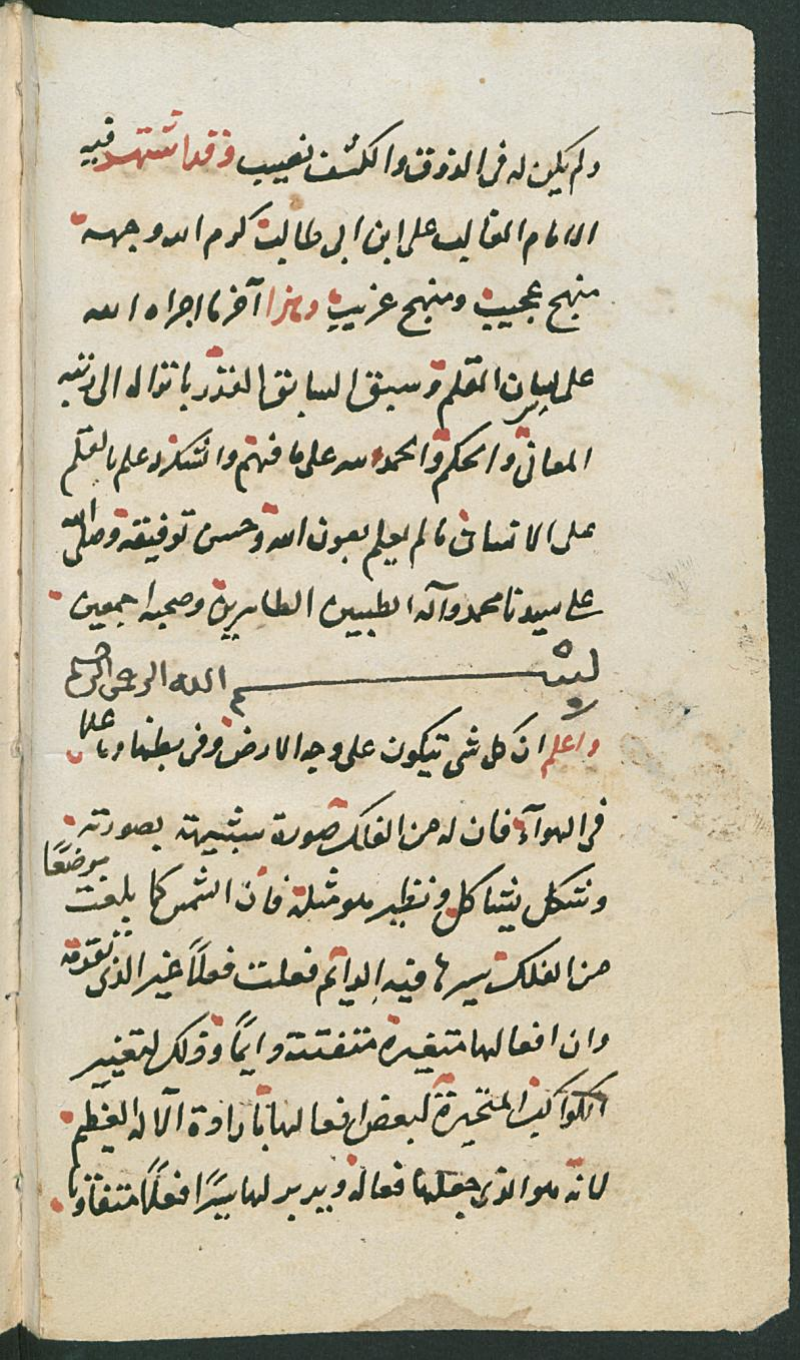 ولم يكن له فى الذوق والكشف نصيب وقد اشتهر فيه
الامام الغالب على ابن ابى طالب كرم الله وجهه
منهج عجيب ومنهج غريب وهذا آخر ما اجراه الله
على لسان القلم وسبق السابق القدر بانزاله الى رتبة
المعانى والحكم والحمد لله على ما فهم والشكر علم بالقلم
على الانسان مالم يعلم بعون الله وحسن توفيقه وصلى الله
على سيدنا محمد وآله الطيبين الطاهرين وصحبه اجمعين
بسم الله الرحمن الرحيم
واعلم ان كل شى تيكون على وجه الارض وفى بطنها وما علا
فى الهوآء فان له من الفلك صورة شبيهة بصورته
وشكل يشاكل ونظير هو مثله فان الشمس كما بلغت موضعًا
من الفلك سيرها فيه الدائم فعلت فعلًا غير الذى تقدمه
وان افعالها متغيرة متفتنة دايمًا وذلك لتغيير
الكواكب المتحيرة لبعض افعالها بارادة الآله العظيم
لانه هو الذى جعلها فعاله ويدبر لها سيرًا فعلًا متفاوتا